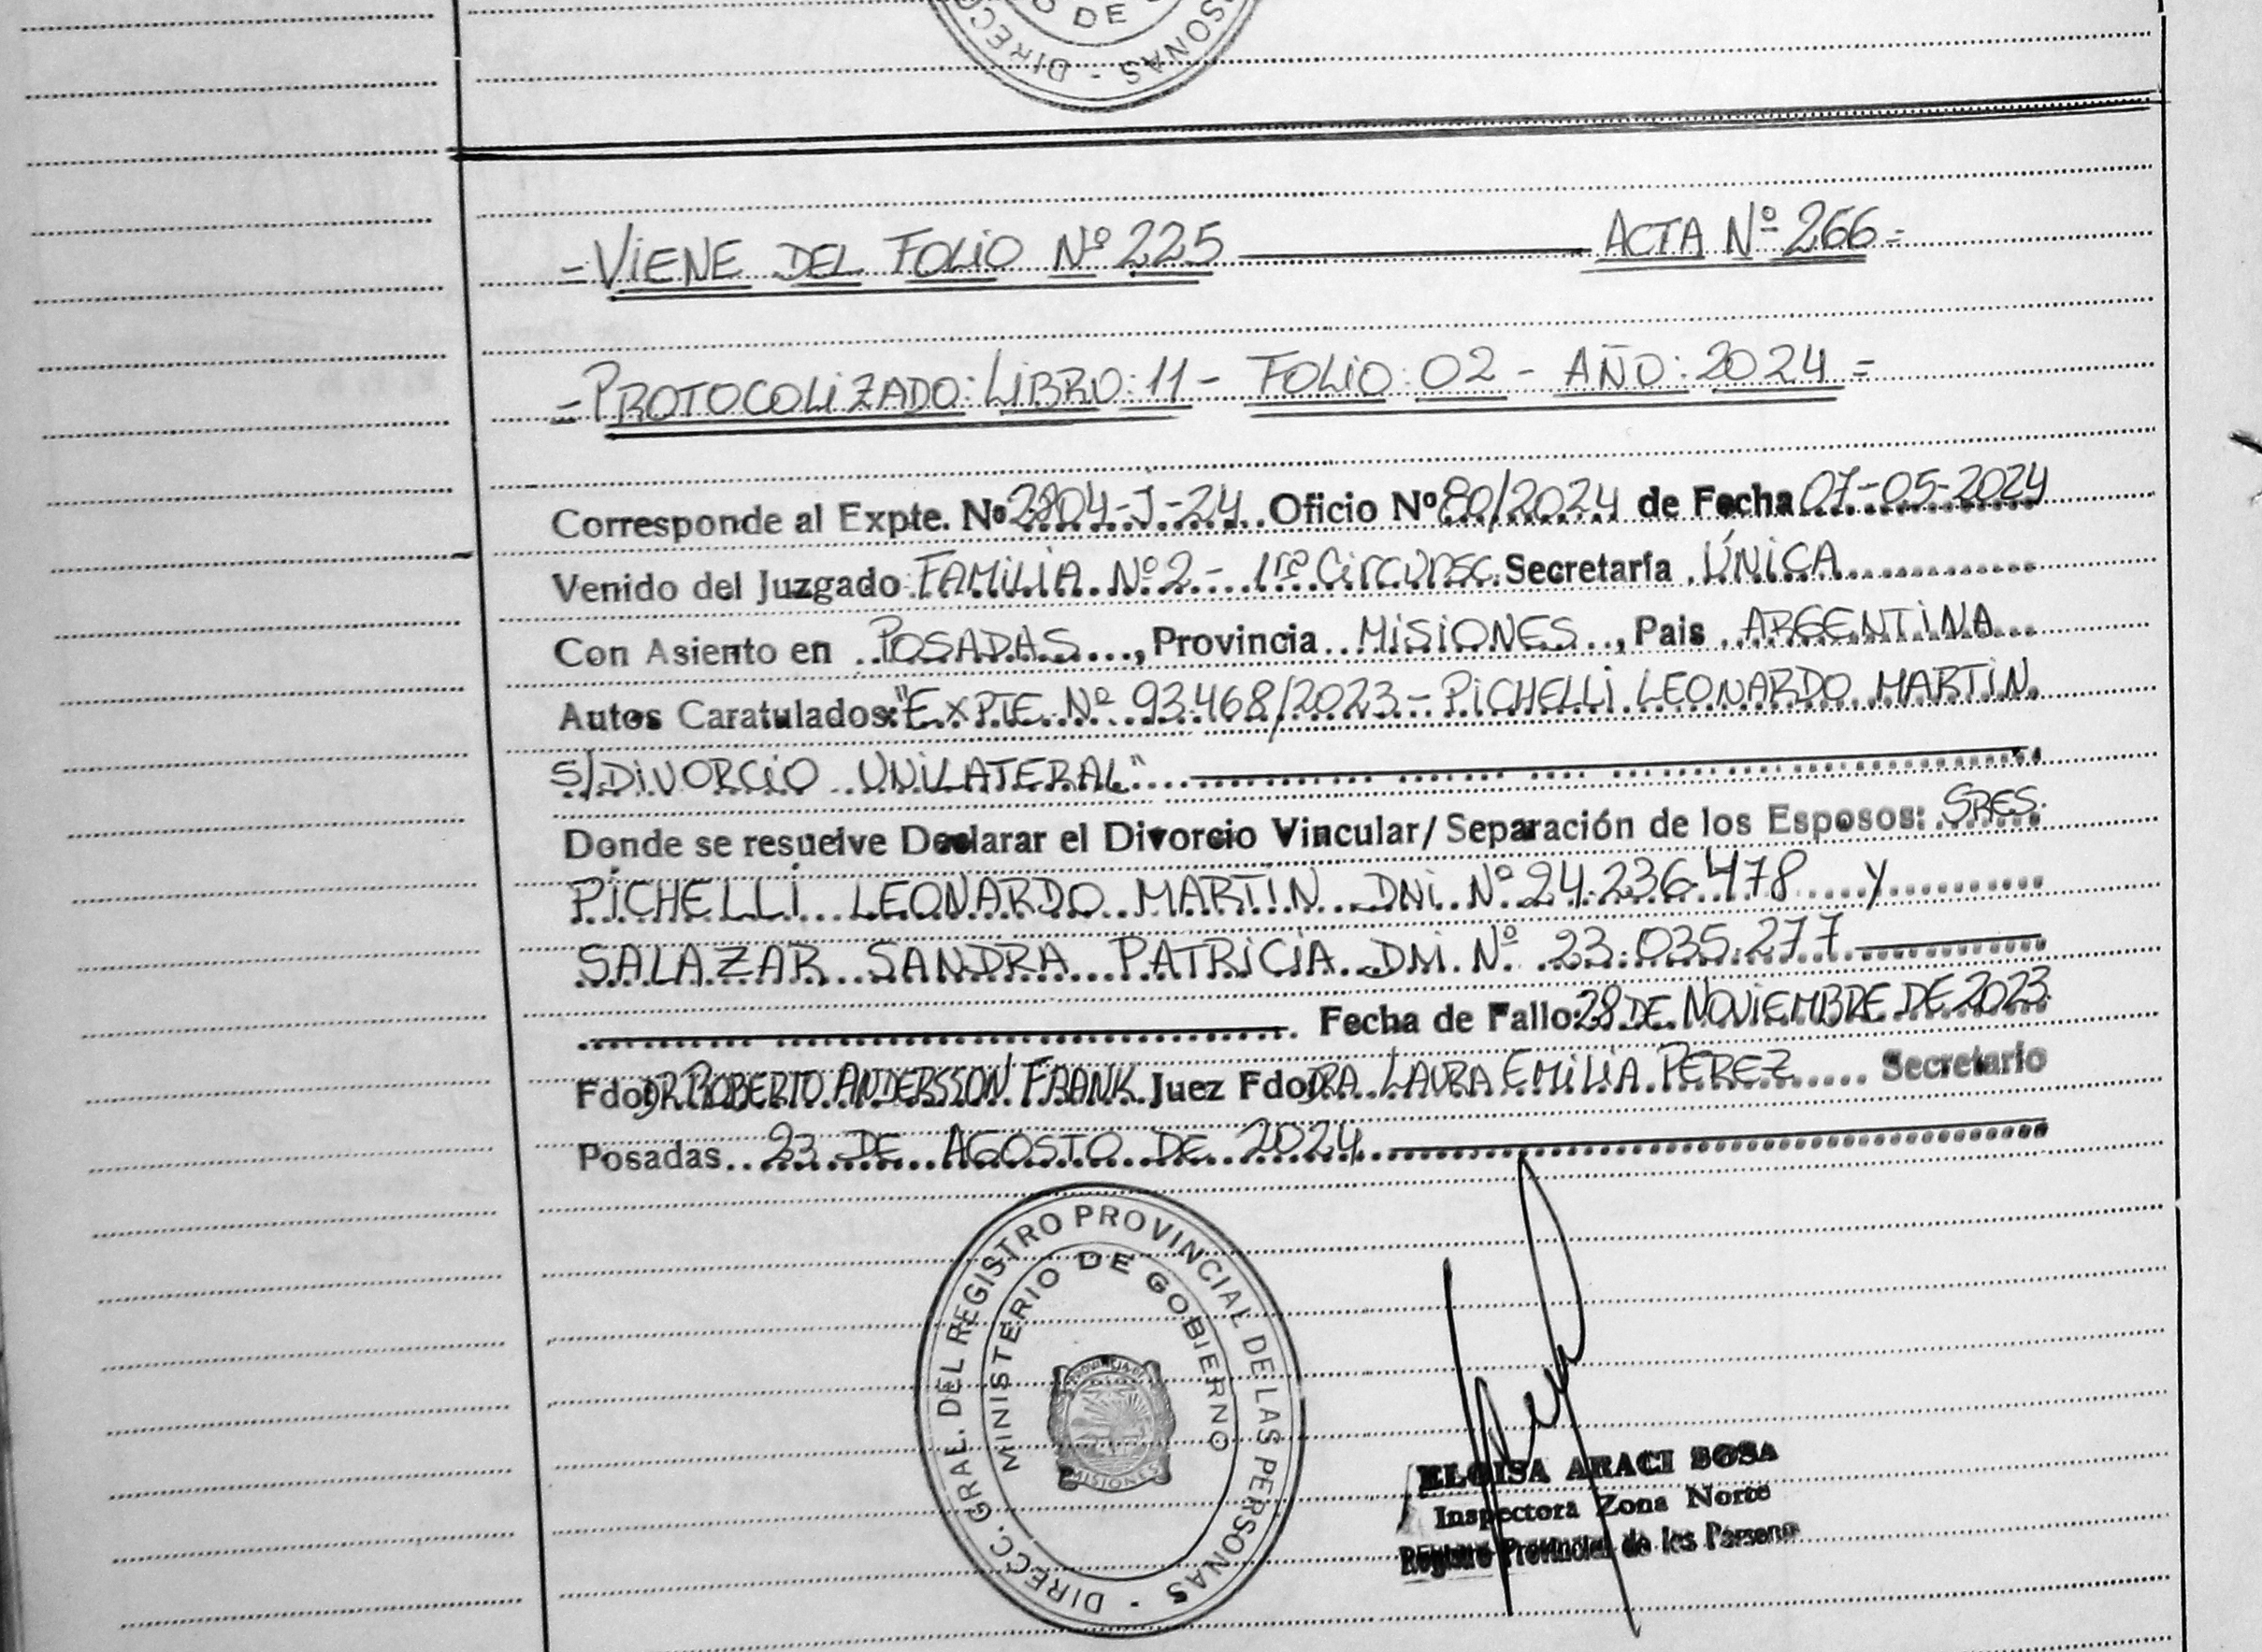 O DE
SONAS - DIRECC
= VIENE DEL FOLIO Nº 225 ACTA Nº 266 =
= PROTOCOLIZADO: LIBRO: 11 - FOLIO: 02 - AÑO: 2024 =
Corresponde al Expte. Nº 2804-J-24 Oficio Nº 80/2024 de Fecha 07-05-2024
Venido del Juzgado: FAMILIA Nº 2 - 1ra Circunsc. Secretaría ÚNICA
Con Asiento en POSADAS, Provincia MISIONES, Pais ARGENTINA
Autos Caratulados: "EXPTE Nº 93468/2023 - PICHELLI LEONARDO MARTIN
S/DIVORCIO UNILATERAL"
Donde se resuelve Declarar el Divorcio Vincular/ Separación de los Esposos: SRES.
PICHELLI LEONARDO MARTIN DNI Nº 24.236.478 y
SALAZAR SANDRA PATRICIA DNI Nº 23.035.277
Fecha de Fallo: 28 DE NOVIEMBRE DE 2023
Fdo: DR ROBERTO ANDERSSON FRANK Juez Fdo: DRA LAURA EMILIA PEREZ Secretario
Posadas 23 DE AGOSTO DE 2024
DIRECC. GRAL. DEL REGISTRO PROVINCIAL DE LAS PERSONAS -
MINISTERIO DE GOBIERNO
PROVINCIA DE
MISIONES
ELOISA ARACI SOSA
Inspectora Zona Norte
Registro Provincial de las Persona